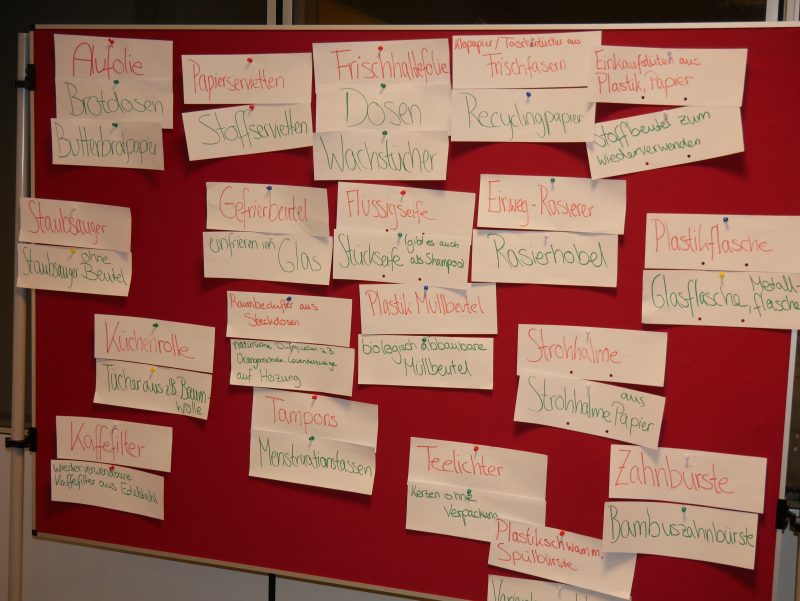 Alufolie
Brotdosen
Butterbrotpapier
Papierservietten
Stoffservietten
Frischhaltefolie
Dosen
Wachstücher
Klopapier/Taschentücher aus
Frischfasern
Recyclingpapier
Einkaufstüten aus
Plastik, Papier
Stoffbeutel zum
wiederverwenden
Staubsauger
Staubsauger ohne
Beutel
Gefrierbeutel
einfrieren im Glas
Flüssigseife
Stückseife (gibt es auch
als Shampoo)
Einweg-Rasierer
Rasierhobel
Plastikflasche
Glasflasche, Metall-
flasche
Küchenrolle
Tücher aus z.B. Baum-
wolle
Raumbedufter aus
Steckdosen
natürliche Duftquellen z.B.
Orangenschale, Lavendelzweige
auf Heizung
Plastik Müllbeutel
biologisch abbaubare
Müllbeutel
Strohhalme
Strohhalme aus
Papier
Kaffefilter
wiederverwendbare
Kaffefilter aus Edelstahl
Tampons
Menstruationstassen
Teelichter
Kerzen ohne
Verpackung
Plastikschwamm,
Spülbürste
Zahnbürste
Bambuszahnbürste